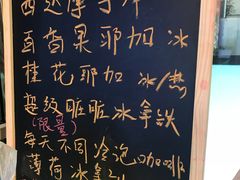 西达摩手冲
百香果耶加 冰
桂花耶加 冰/热
超级脏脏冰拿铁
(限量)
每天不同冷泡咖啡
薄荷冰拿